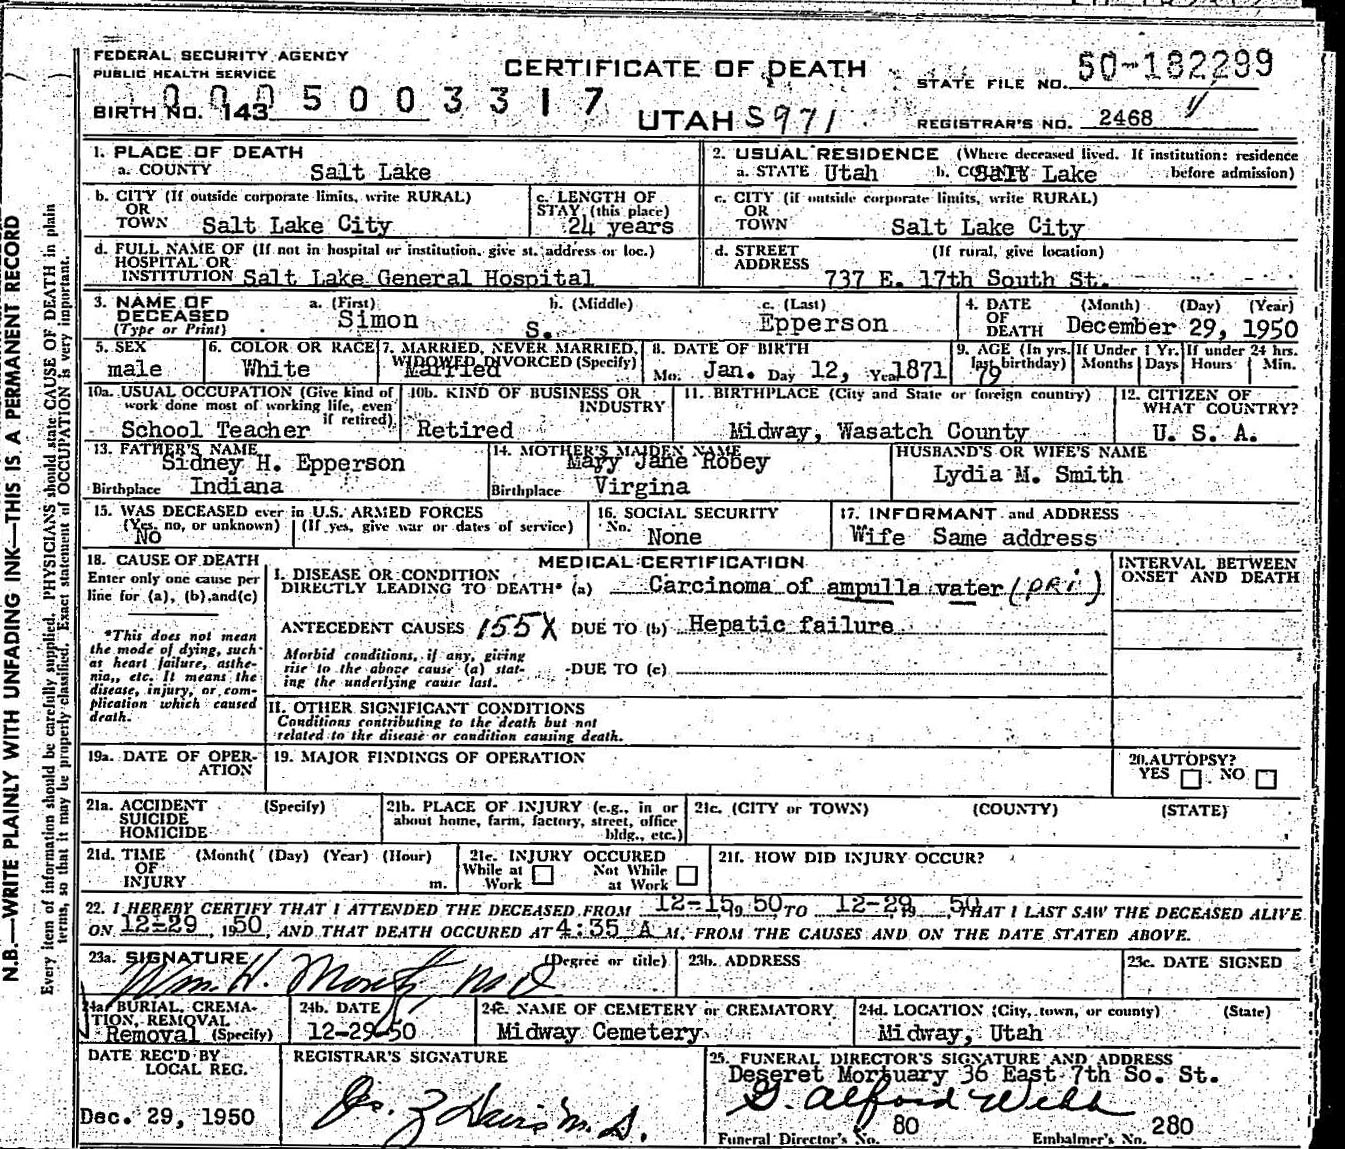 FEDERAL SECURITY AGENCY
PUBLIC HEALTH SERVICE
CERTIFICATE OF DEATH
STATE FILE NO. 50-182299
0005003317
BIRTH NO. 143
UTAH S971
REGISTRAR'S NO. 2468
1. PLACE OF DEATH
a. COUNTY Salt Lake
2. USUAL RESIDENCE (Where deceased lived. If institution: residence before admission)
a. STATE Utah b. COUNTY Salt Lake
b. CITY (If outside corporate limits, write RURAL)
OR
TOWN Salt Lake City
c. LENGTH OF
STAY (this place)
24 years
c. CITY (if outside corporate limits, write RURAL)
OR
TOWN Salt Lake City
d. FULL NAME OF (If not in hospital or institution, give st. address or loc.)
HOSPITAL OR
INSTITUTION Salt Lake General Hospital
d. STREET (If rural, give location)
ADDRESS
737 E. 17th South St.
3. NAME OF
DECEASED
(Type or Print)
a. (First) b. (Middle) c. (Last)
Simon S. Epperson
4. DATE (Month) (Day) (Year)
OF
DEATH December 29, 1950
5. SEX
male
6. COLOR OR RACE
White
7. MARRIED, NEVER MARRIED,
WIDOWED DIVORCED (Specify)
Married
8. DATE OF BIRTH
Mo. Jan. Day 12, Year 1871
9. AGE (In yrs. last birthday)
79
If Under 1 Yr.
Months Days
If under 24 hrs.
Hours Min.
10a. USUAL OCCUPATION (Give kind of
work done most of working life, even
if retired)
School Teacher
10b. KIND OF BUSINESS OR
INDUSTRY
Retired
11. BIRTHPLACE (City and State or foreign country)
Midway, Wasatch County
12. CITIZEN OF
WHAT COUNTRY?
U. S. A.
13. FATHER'S NAME
Sidney H. Epperson
Birthplace Indiana
14. MOTHER'S MAIDEN NAME
Mayy Jane Robey
Birthplace Virgina
HUSBAND'S OR WIFE'S NAME
Lydia M. Smith
15. WAS DECEASED ever in U.S. ARMED FORCES
(Yes, no, or unknown) (If yes, give war or dates of service)
No
16. SOCIAL SECURITY
No.
None
17. INFORMANT and ADDRESS
Wife Same address
18. CAUSE OF DEATH
Enter only one cause per
line for (a), (b), and (c)
*This does not mean
the mode of dying, such
as heart failure, asthe-
nia, etc. It means the
disease, injury, or com-
plication which caused
death.
MEDICAL CERTIFICATION
INTERVAL BETWEEN
ONSET AND DEATH
I. DISEASE OR CONDITION
DIRECTLY LEADING TO DEATH* (a) Carcinoma of ampulla vater (PRI)
ANTECEDENT CAUSES 155X DUE TO (b) Hepatic failure
Morbid conditions, if any, giving
rise to the above cause (a) stat-
ing the underlying cause last.
DUE TO (c)
II. OTHER SIGNIFICANT CONDITIONS
Conditions contributing to the death but not
related to the disease or condition causing death.
19a. DATE OF OPER-
ATION
19. MAJOR FINDINGS OF OPERATION
20. AUTOPSY?
YES NO
21a. ACCIDENT (Specify)
SUICIDE
HOMICIDE
21b. PLACE OF INJURY (e.g., in or
about home, farm, factory, street, office
bldg., etc.)
21c. (CITY or TOWN) (COUNTY) (STATE)
21d. TIME (Month( (Day) (Year) (Hour)
OF
INJURY m.
21e. INJURY OCCURED
While at Work Not While at Work
21f. HOW DID INJURY OCCUR?
22. I HEREBY CERTIFY THAT I ATTENDED THE DECEASED FROM 12-15, 1950, TO 12-29, 19 50, THAT I LAST SAW THE DECEASED ALIVE
ON 12-29, 1950, AND THAT DEATH OCCURED AT 4:35 A M. FROM THE CAUSES AND ON THE DATE STATED ABOVE.
23a. SIGNATURE (Degree or title)
Wm. H. MD
23b. ADDRESS
23c. DATE SIGNED
24a. BURIAL, CREMA-
TION, REMOVAL
Removal (Specify)
24b. DATE
12-29-50
24c. NAME OF CEMETERY or CREMATORY
Midway Cemetery
24d. LOCATION (City, town, or county) (State)
Midway, Utah
DATE REC'D BY
LOCAL REG.
Dec. 29, 1950
REGISTRAR'S SIGNATURE
M.D.
25. FUNERAL DIRECTOR'S SIGNATURE AND ADDRESS
Deseret Mortuary 36 East 7th So. St.
G. Alford Webb
Funeral Director's No. 80
Embalmer's No. 280
N.B.—WRITE PLAINLY WITH UNFADING INK—THIS IS A PERMANENT RECORD
Every item of information should be carefully supplied. PHYSICIANS should state CAUSE OF DEATH in plain
terms, so that it may be properly classified. Exact statement of OCCUPATION is very important.